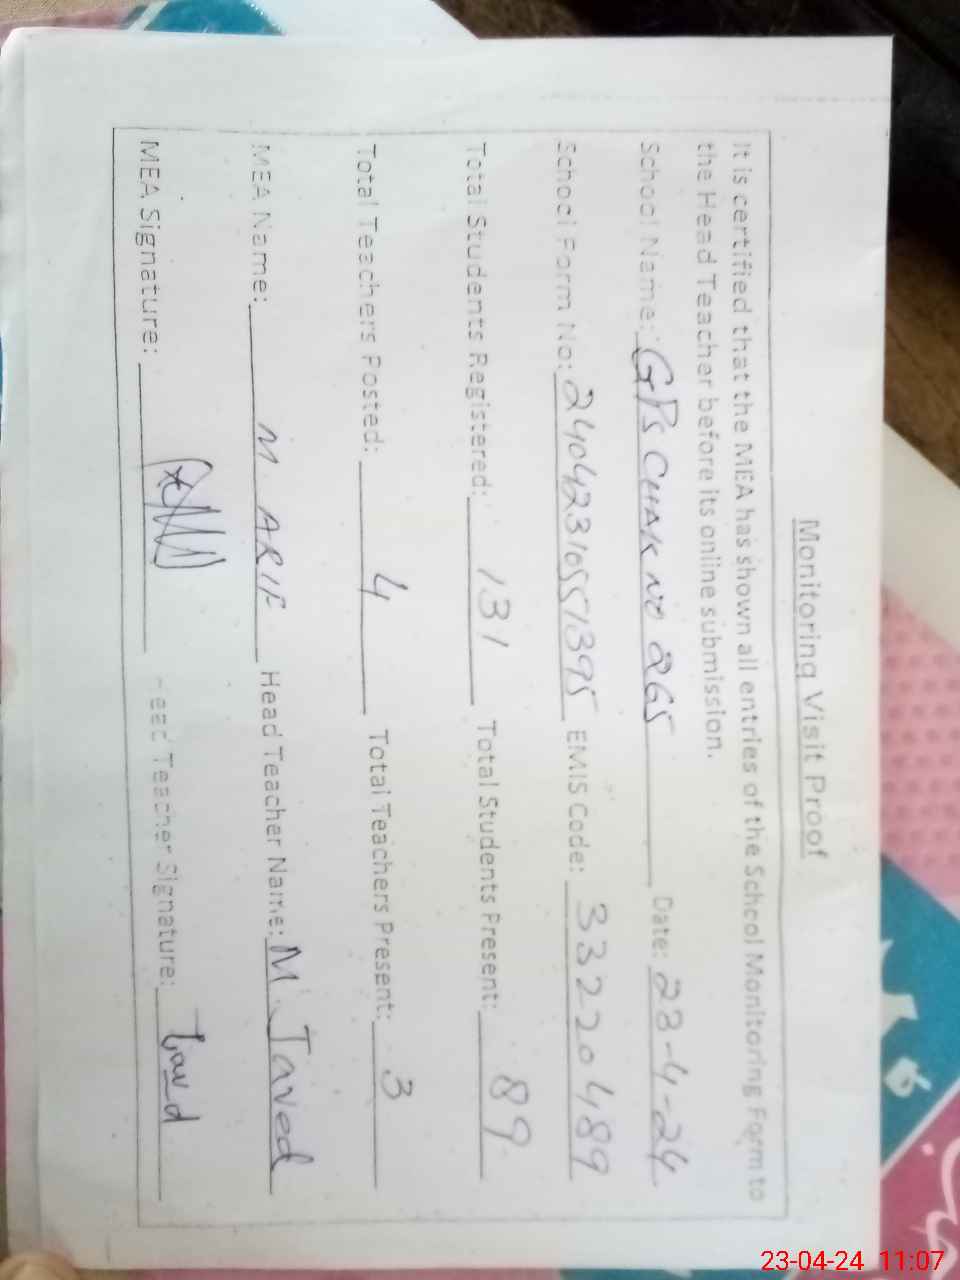 Monitoring Visit Proof
It is certified that the MEA has shown all entries of the School Monitoring Form to
the Head Teacher before its online submission.
School Name: GPS CHAK NO 265 Date: 23-4-24
School Form No: 24042310551395 EMIS Code: 33220489
Total Students Registered: 131 Total Students Present: 89
Total Teachers Posted: 4 Total Teachers Present: 3
MEA Name: M. ARIF Head Teacher Name: M. Javed
MEA Signature: Head Teacher Signature:
23-04-24 11:07